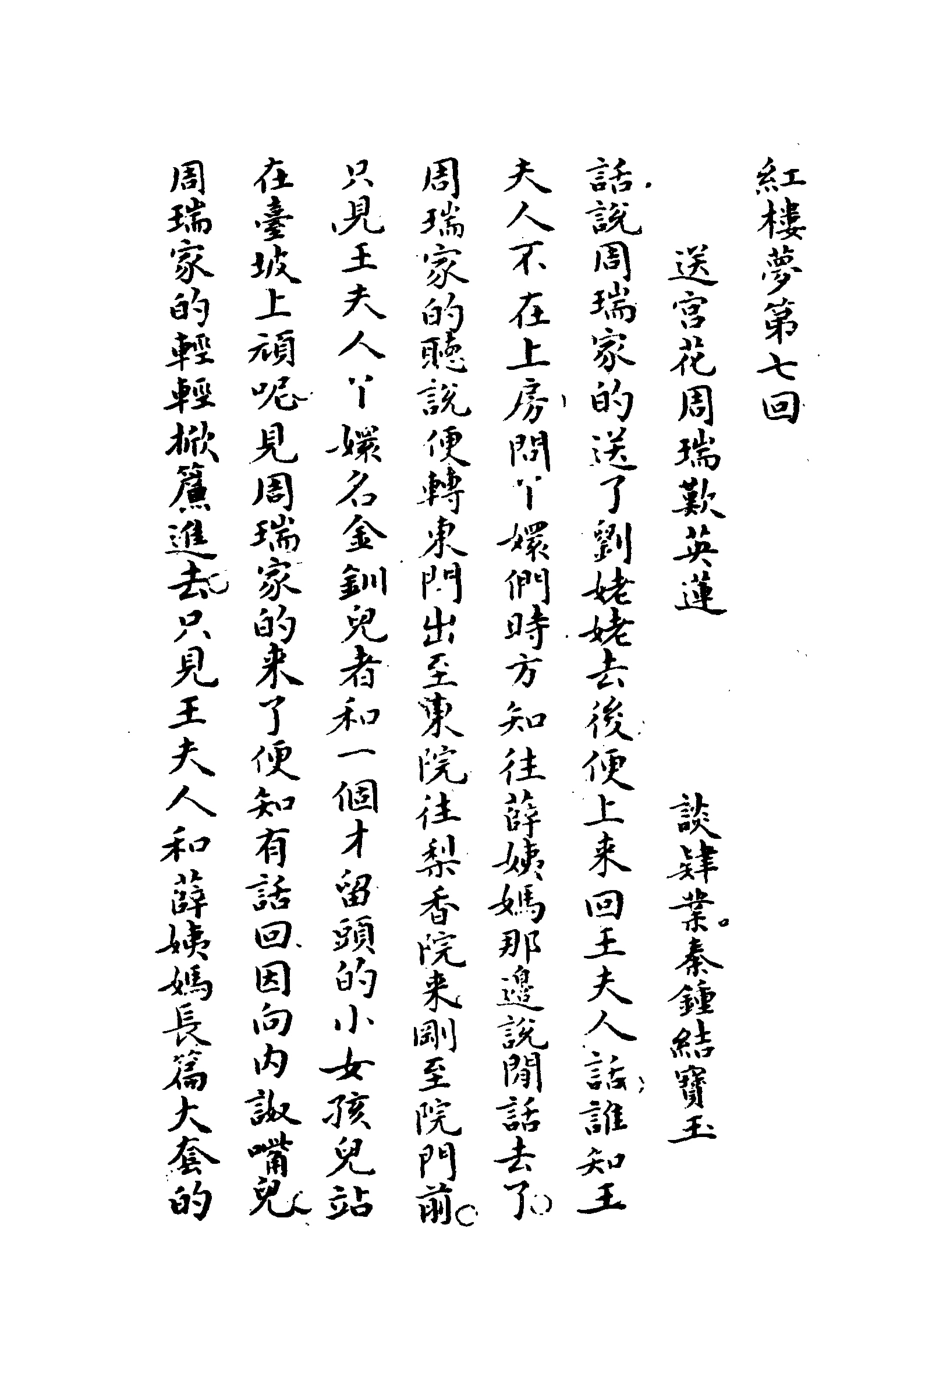 紅樓夢第七回
送宮花周瑞歎英蓮　談肄業秦鍾結寶玉
話說周瑞家的送了劉姥姥去後便上来回王夫人話誰知王
夫人不在上房問丫嬛們時方知往薛姨媽那邊說閒話去了
周瑞家的聽說便轉東門出至東院往梨香院来剛至院門前
只見王夫人丫嬛名金釧兒者和一個才留頭的小女孩兒站
在臺坡上頑呢見周瑞家的来了便知有話回因向内努嘴兒
周瑞家的輕輕掀簾進去只見王夫人和薛姨媽長篇大套的